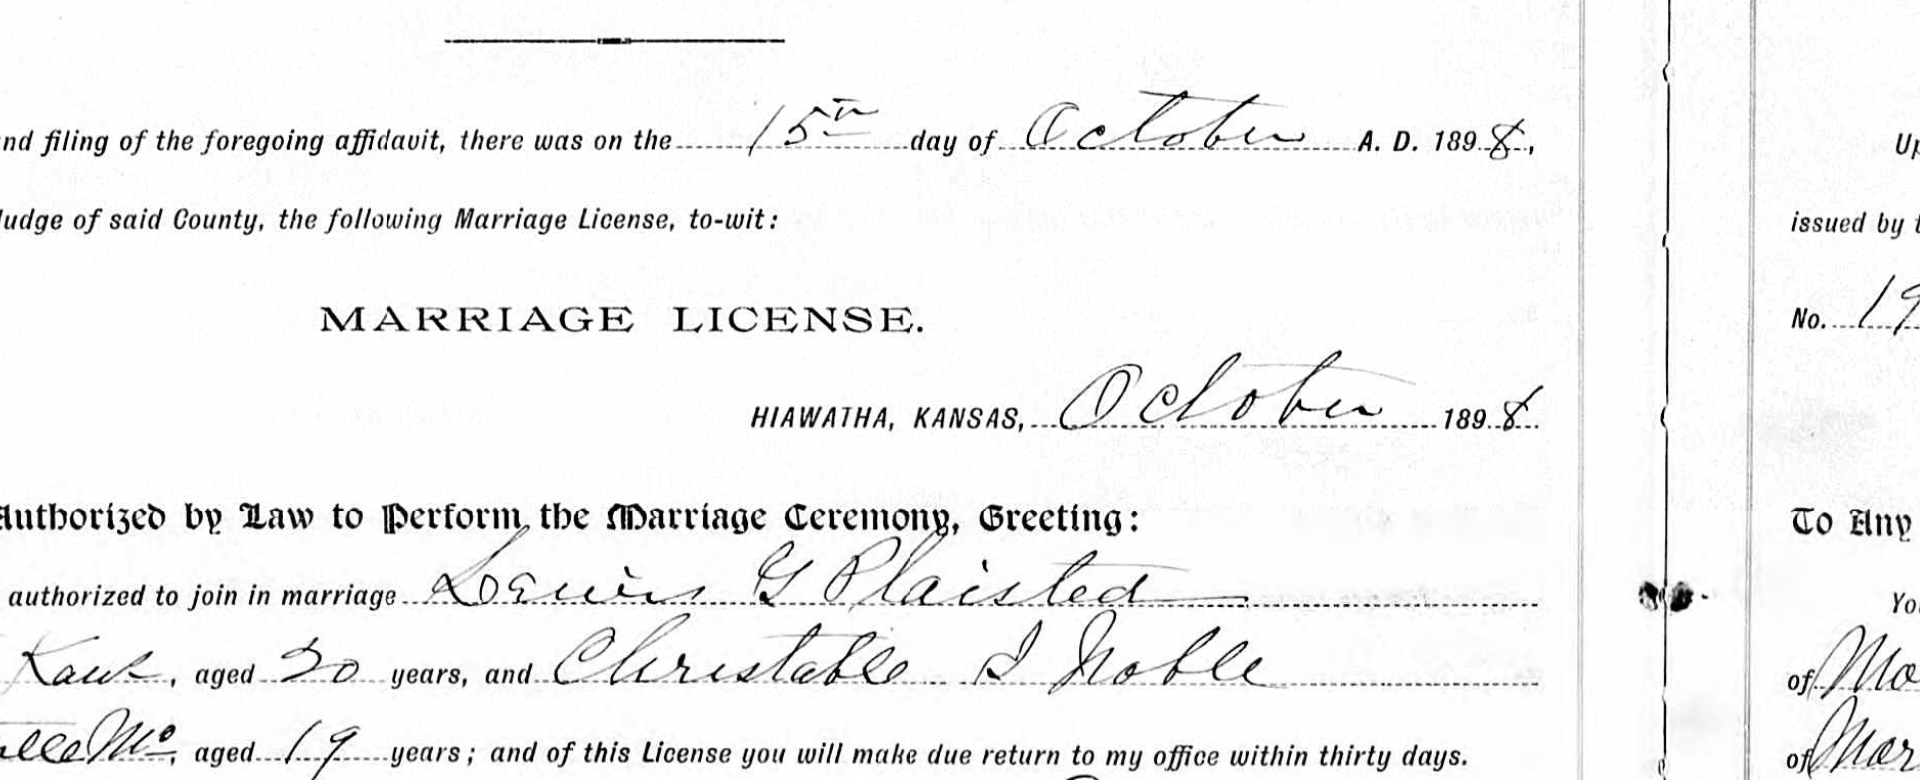 nd filing of the foregoing affidavit, there was on the 15th day of October A. D. 1898,
Judge of said County, the following Marriage License, to-wit:
MARRIAGE LICENSE.
HIAWATHA, KANSAS, October 1898.
Authorized by Law to Perform the Marriage Ceremony, Greeting:
authorized to join in marriage Lewis G Plaisted
Kans, aged years, and Christable I Noble
ille Mo, aged 19 years; and of this License you will make due return to my office within thirty days.
Up
issued by t
No. 19
To Any
Yo
of Mo
of Mar